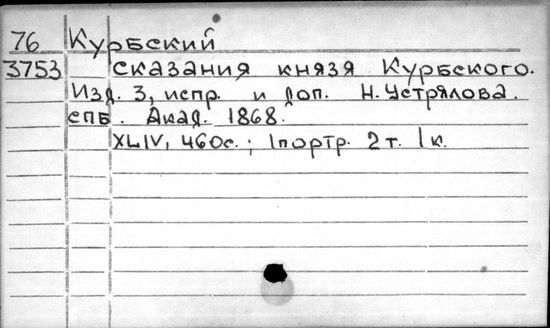 76 Курбский
3753 сказания князя Курбского.
Изд. 3, испр. и доп. Н. Устрялова.
спб. Акад. 1868.
XLIV, 460с.; 1портр. 2т. 1к.